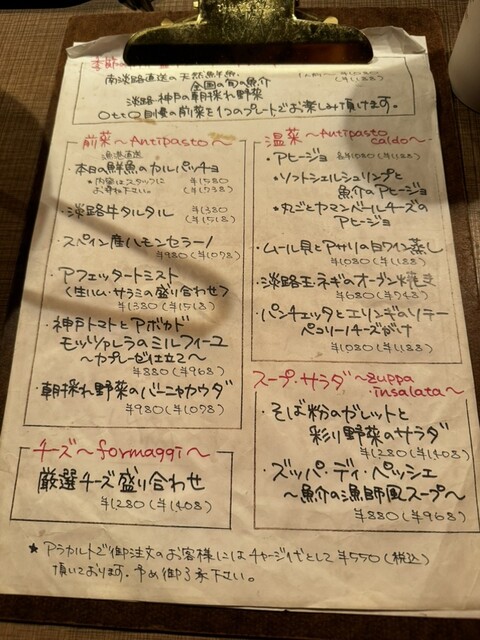 南淡路直送の天然鮮魚
全国の旬の魚介
(¥1188)
淡路・神戸の朝採れ野菜
OttO自慢の前菜を1つのプレートでお楽しみ頂けます。
前菜～Antipasto～
漁港直送
・本日の鮮魚のカルパッチョ
*内容はスタッフに
お尋ね下さい
¥1580
(¥1738)
・淡路牛タルタル ¥1380
(¥1518)
・スペイン産ハモンセラーノ
¥980(¥1078)
・アフェッタートミスト
(生ハム・サラミの盛り合わせ)
¥1380(¥1518)
・神戸トマトとアボカド
モッツァレラのミルフィーユ
～カプレーゼ仕立て～
¥880(¥968)
・朝採れ野菜のバーニャカウダ
¥980(¥1078)
チーズ～formaggi～
厳選チーズ盛り合わせ
¥1280(¥1408)
温菜～Antipasto
caldo～
・アヒージョ 各¥1080(¥1188)
・ソフトシェルシュリンプと
魚介のアヒージョ
・丸ごとカマンベールチーズの
アヒージョ
・ムール貝とアサリの白ワイン蒸し
¥1080(¥1188)
・淡路玉ネギのオーブン焼き
¥680(¥748)
・パンチェッタとエリンギのソテー
ペコリーノチーズがけ
¥1080(¥1188)
スープ・サラダ～zuppa
insalata～
・そば粉のガレットと
彩り野菜のサラダ
¥1280(¥1408)
・ズッパ・ディ・ペッシェ
～魚介の漁師風スープ～
¥880(¥968)
★アラカルトで御注文のお客様にはチャージ代として¥550(税込)
頂いております。予め御了承下さい。